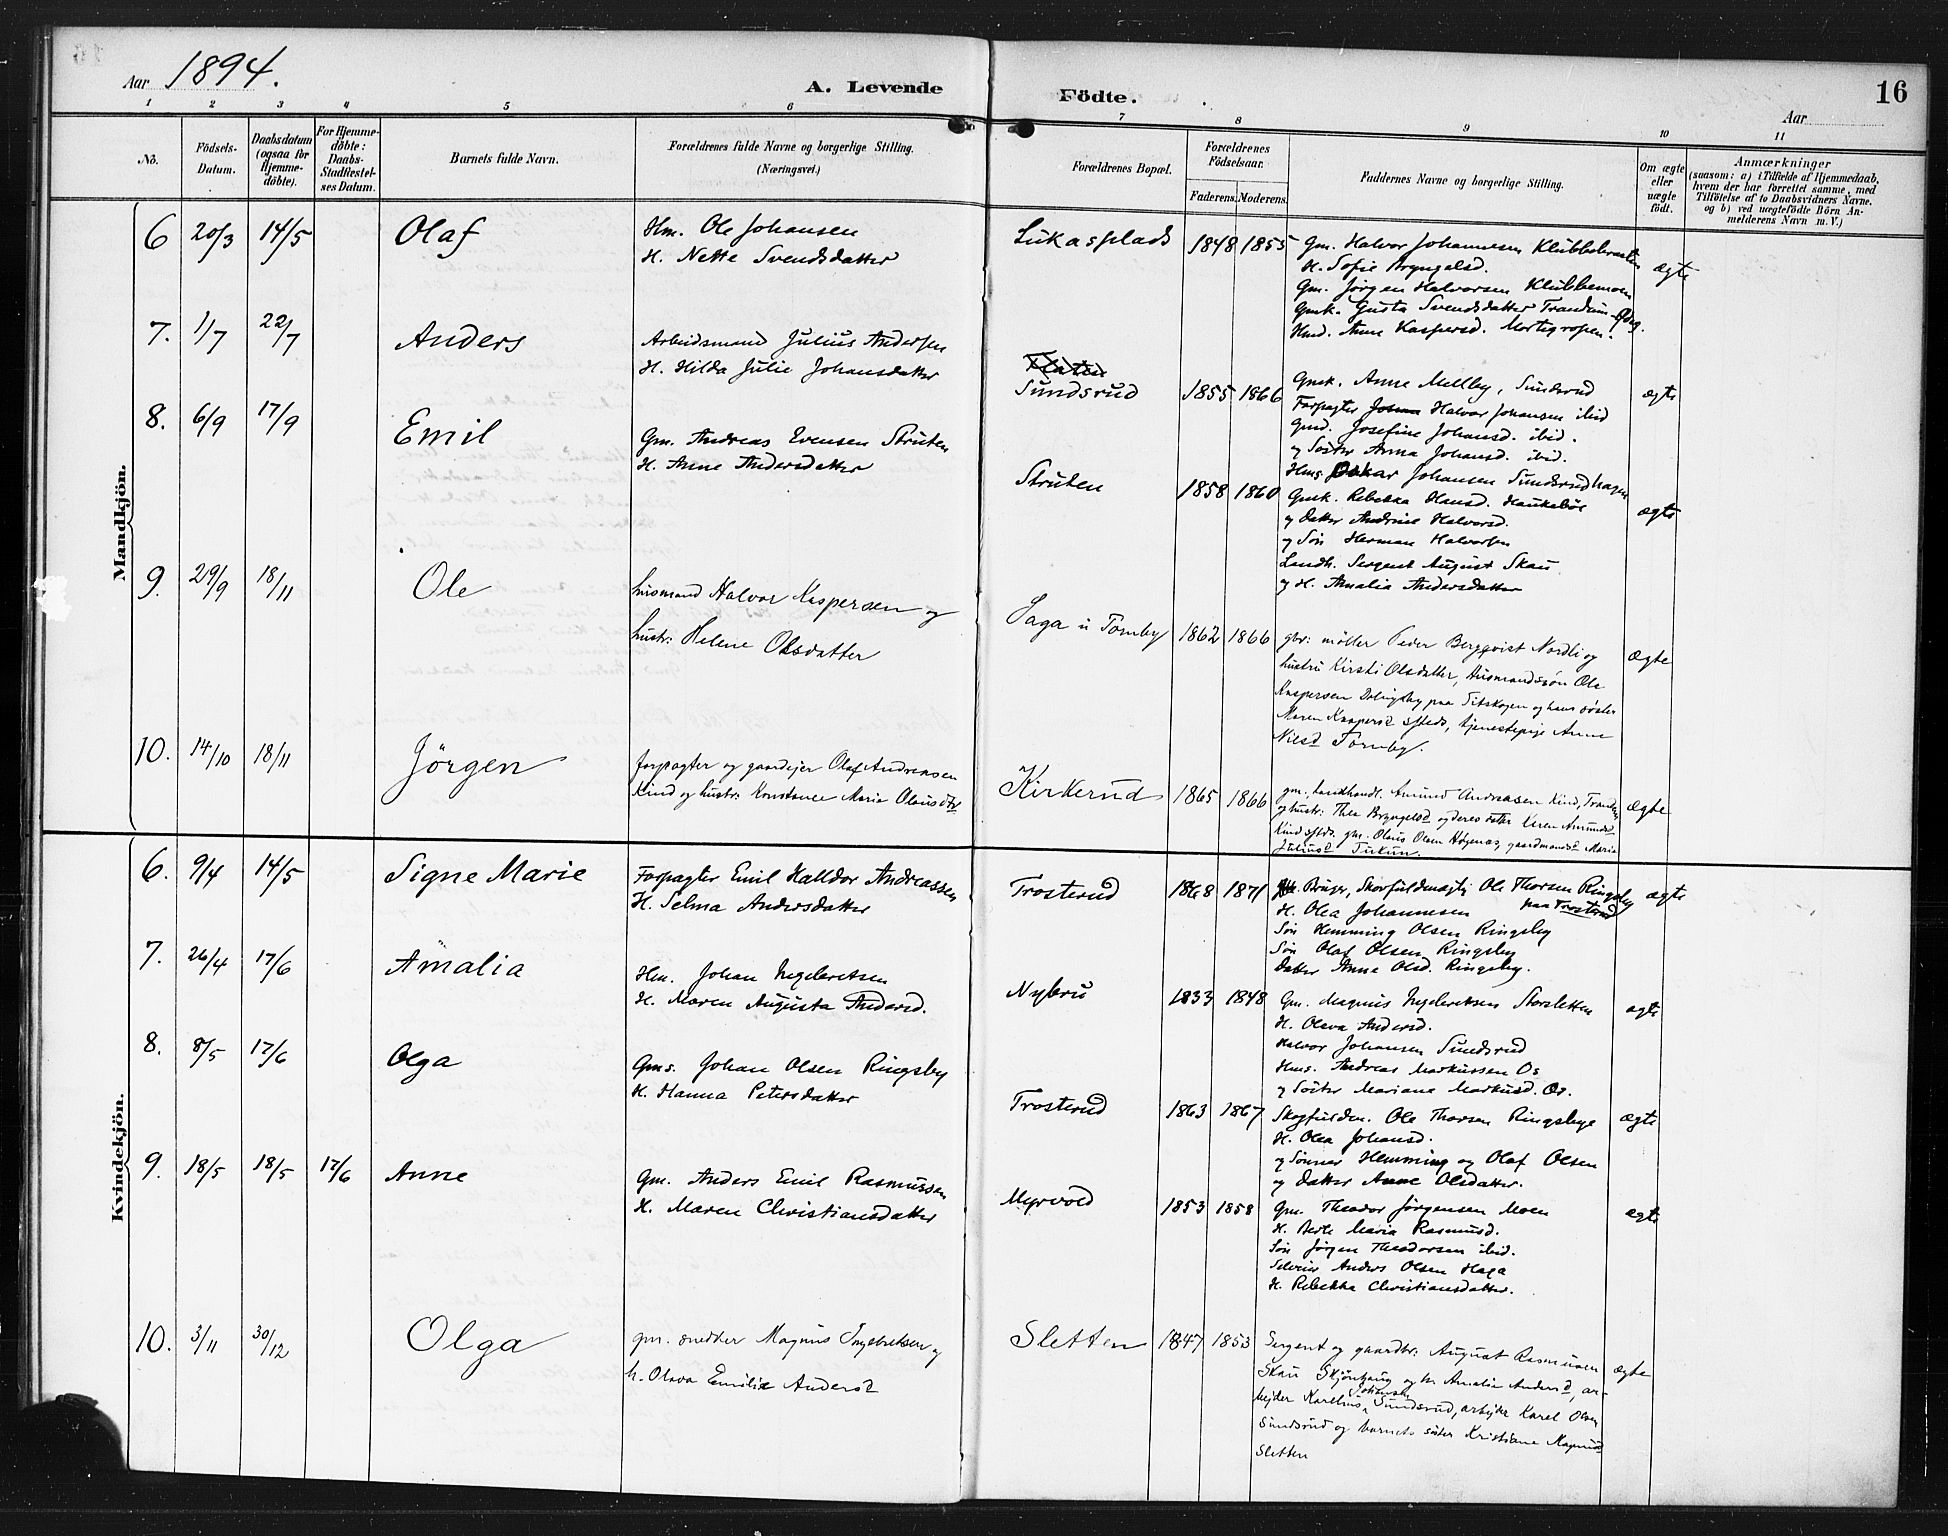 Aar 1894.
A. Levende Födte.
Aar
16
1 2 3 4 5 6 7 8 9 10 11
No.
Födsels-Datum.
Daabsdatum (ogsaa for Hjemme-döbte).
For Hjemme-döbte: Daabs-Stadfæstel-ses Datum.
Barnets fulde Navn.
Forældrenes fulde Navne og borgerlige Stilling. (Næringsvei.)
Forældrenes Bopæl.
Forældrenes Födselsaar.
Faderens. Moderens.
Faddernes Navne og borgerlige Stilling.
Om ægte eller uægte födt.
Anmærkninger
(saasom: a) i Tilfælde af Hjemmedaab,
hvem der har forrettet samme, med
Tilföielse af to Daabsvidners Navne.
og b) ved uægtefödte Börn An-
melderens Navn m. V.)
Mandkjön.
6 20/3 14/5 Olaf
Hm. Ole Johansen
H. Nette Svendsdatter
Lukasplads 1848 1855
Gm. Halvor Johannesen Klubbebraaten
H. Sofie Bryngelsd.
Gm. Jørgen Halvorsen Klubbemoen
Gmk. Gusta Svendsdatter Trandum
Hmd. Anne Kaspersd. Mortigropen.
ægte
7. 1/7 22/7 Anders
Arbeidsmand Julius Andersen
H. Hilda Julie Johansdatter
Sundsrud 1855 1866
Gmsk. Anne Mellby, Sundsrud
Forpagter Halvor Johansen ibid
Gmd. Josefine Johansd. ibid.
og Søster Anna Johansd. ibid.
Hms. Oskar Johansen Sundsrudhagen
ægte
8. 6/9 17/9 Emil
Gm. Andreas Evensen Struten
H. Anne Andersdatter
Struten 1858 1860
Gmsk. Rebekka Hansd. Haukebøl
og datter Andrine Halvorsd.
og Søn Herman Halvorsen
Landh. Sergent August Skau
og H. Amalia Andersdatter
ægte
9. 29/9 18/11 Ole
husmand Halvor Kaspersen og
hustr: Helene Olsdatter
Haga u Tornby 1862 1866
gbr: møller Peder Bergqvist Nordli og
hustru Kirsti Olsdatter, husmandssøn Ole
Kaspersen paa og hans søster
Maren Kaspersd stds, tjenestepige Anne
Nilsd Tornby.
ægte
10. 14/10 18/11 Jörgen
forpagter og gaardejer Olaf Andreasen
Kind og hustr: Konstance Maria Olausdtr
Kirkerud 1865 1866
gm. landhandl. Amund Andreasen Kind,
og hustr: Thea Bryngelsd og deres datter Karen Amundsd
Kind stds. gm. Olaus Olsen gaardmandsd Maria
Juliusd
ægte
Kvindekjön.
6. 9/4 14/5 Signe Marie
Forpagter Emil Halldor Andreassen
H. Selma Andersdatter
Trosterud 1868 1871
Bruger, Skovfuldmægtig Ole Thorsen Ringsby
paa Trosterud
H. Olea Johannesen
Søn Hemming Olsen Ringsby
Søn Olaf Olsen Ringsby
datter Anne Olsd. Ringsby.
ægte
7. 26/4 17/6 Amalia
Hm. Johan Ingebretsen
H. Maren Augusta Andersd.
Nybrû 1833 1848
Gm. Magnus Ingebretsen Storsletten
H. Olava Andersd.
Halvor Johansen Sundsrud
Hms. Andreas Markussen Os
og Søster Mariane Markusd. Os.
ægte
8. 8/5 17/6 Olga
Gms. Johan Olsen Ringsby
H. Hanna Petersdatter
Trosterud 1863 1867
Skogfuldm. Ole Thorsen Ringsbye
H. Olea Johansd.
og Sønner Hemming og Olaf Olsen
og datter Anne Olsdatter.
ægte
9. 18/5 18/5 17/6 Anne
Gm. Anders Emil Rasmussen
H. Maren Christiansdatter
Myrvold 1853 1858
Gm. Theodor Jørgensen Moen
H. Berte Maria Rasmusd.
Søn Jørgen Theodorsen ibid.
Selveier Anders Olsen Haga
H. Rebekka Christiansdatter.
ægte
10. 3/11 30/12 Olga
gm. snedker Magnus Ingebretsen og
h. Olava Emilie Andersd
Sletten 1847 1853
Sergent og gaardbr: August Rasmussen
Skau og h. Amalie Andersd, ar-
bejder Karelius Johansen Sundsrud, arbejder Karel Olsen
Sundsrud og barnets søster Kristiane Magnusd
Sletten
ægte